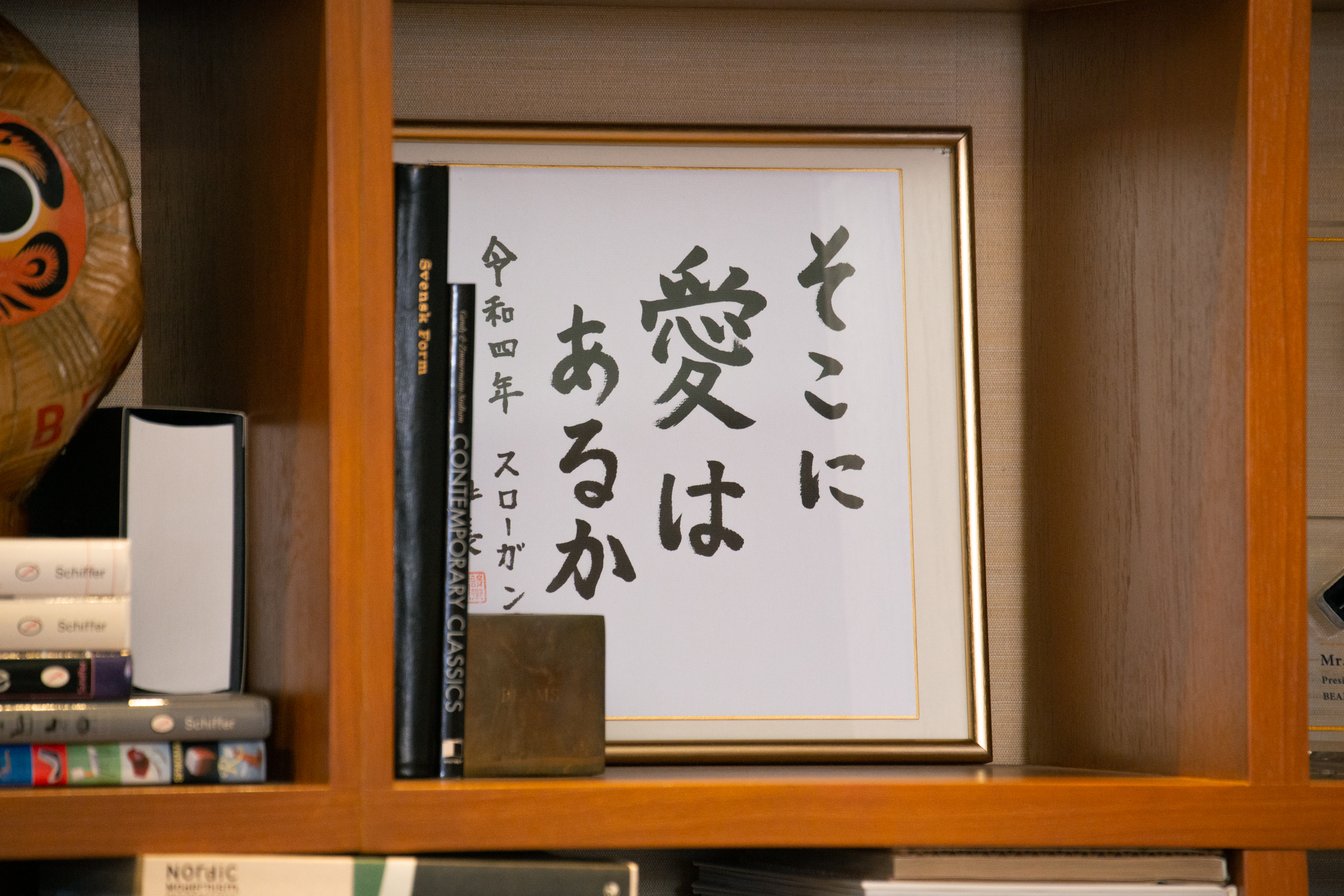 そこに
愛は
あるか
令和四年　スローガン
Svensk Form
CONTEMPORARY CLASSICS
BEAMS
B
Schiffer
Schiffer
Schiffer
NORDIC
Mr.